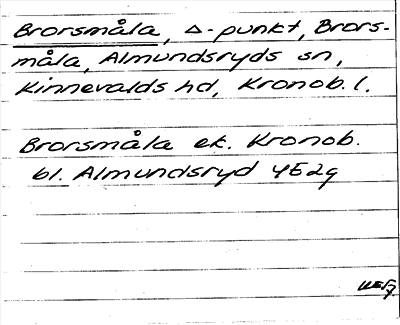 Brorsmåla, Δ-punkt, Brors-
måla, Almundsryds sn,
Kinnevalds hd, Kronob. l.
Brorsmåla ek. Kronob.
bl. Almundsryd 4E2g